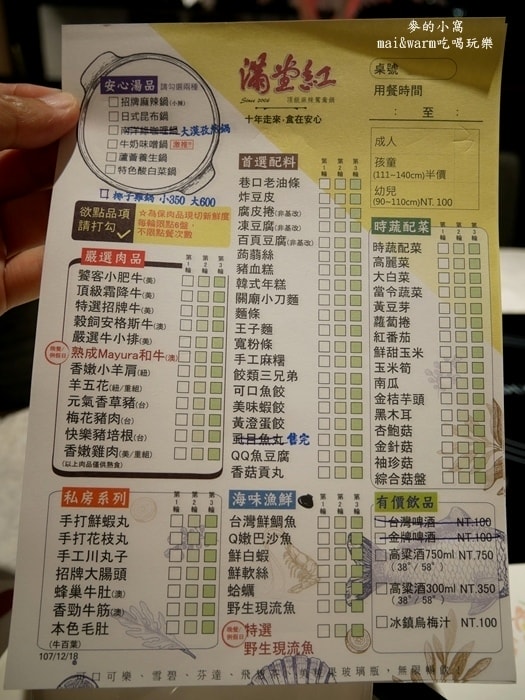 麥的小窩
mai&warm吃喝玩樂
滿堂紅
Since 2006 頂級麻辣鴛鴦鍋
十年走來，食在安心
桌號
用餐時間
： 至 ：
成人
孩童
(111~140cm)半價
幼兒
(90~110cm)NT. 100
安心湯品 請勾選兩種
招牌麻辣鍋(小辣)
日式昆布鍋
南洋綠咖哩鍋 大漠孜然鍋
牛奶味噌鍋 激推!!
蘆薈養生鍋
特色酸白菜鍋
椰子雞鍋 小350 大600
欲點品項
請打勾
☆為保肉品現切新鮮度
每輪限點6盤
不限點餐次數
嚴選肉品 第1輪 第2輪 第3輪
饕客小肥牛(美)
頂級霜降牛(美)
特選招牌牛(美)
穀飼安格斯牛(澳)
嚴選牛小排(美)
晚餐、例假日 熟成Mayura和牛(澳)
香嫩小羊肩(紐)
羊五花(紐/重組)
元氣香草豬(台)
梅花豬肉(台)
快樂豬培根(台)
香嫩雞肉(美/重組)
(以上肉品僅供熟食)
首選配料 第1輪 第2輪 第3輪
巷口老油條
炸豆皮
腐皮捲(非基改)
凍豆腐(非基改)
百頁豆腐(非基改)
蒟蒻絲
豬血糕
韓式年糕
關廟小刀麵
麵條
王子麵
寬粉條
手工麻糬
餃類三兄弟
可口魚餃
美味蝦餃
黃澄蛋餃
虱目魚丸 售完
QQ魚豆腐
香菇貢丸
時蔬配菜 第1輪 第2輪 第3輪
時蔬配菜
高麗菜
大白菜
當令蔬菜
黃豆芽
蘿蔔捲
紅番茄
鮮甜玉米
玉米筍
南瓜
金桔芋頭
黑木耳
杏鮑菇
金針菇
袖珍菇
綜合菇盤
私房系列 第1輪 第2輪 第3輪
手打鮮蝦丸
手打花枝丸
手工川丸子
招牌大腸頭
蜂巢牛肚(澳)
香勁牛筋(澳)
本色毛肚
(牛百葉)
107/12/18
海味漁鮮 第1輪 第2輪 第3輪
台灣鮮鯛魚
Q嫩巴沙魚
鮮白蝦
鮮軟絲
蛤蠣
野生現流魚
晚餐、例假日 特選
野生現流魚
有價飲品
台灣啤酒 NT.100
金牌啤酒 NT.100
高粱酒750ml NT.750
(38°/58°)
高粱酒300ml NT.350
(38°/58°)
冰鎮烏梅汁 NT.100
可口可樂、雪碧、芬達、